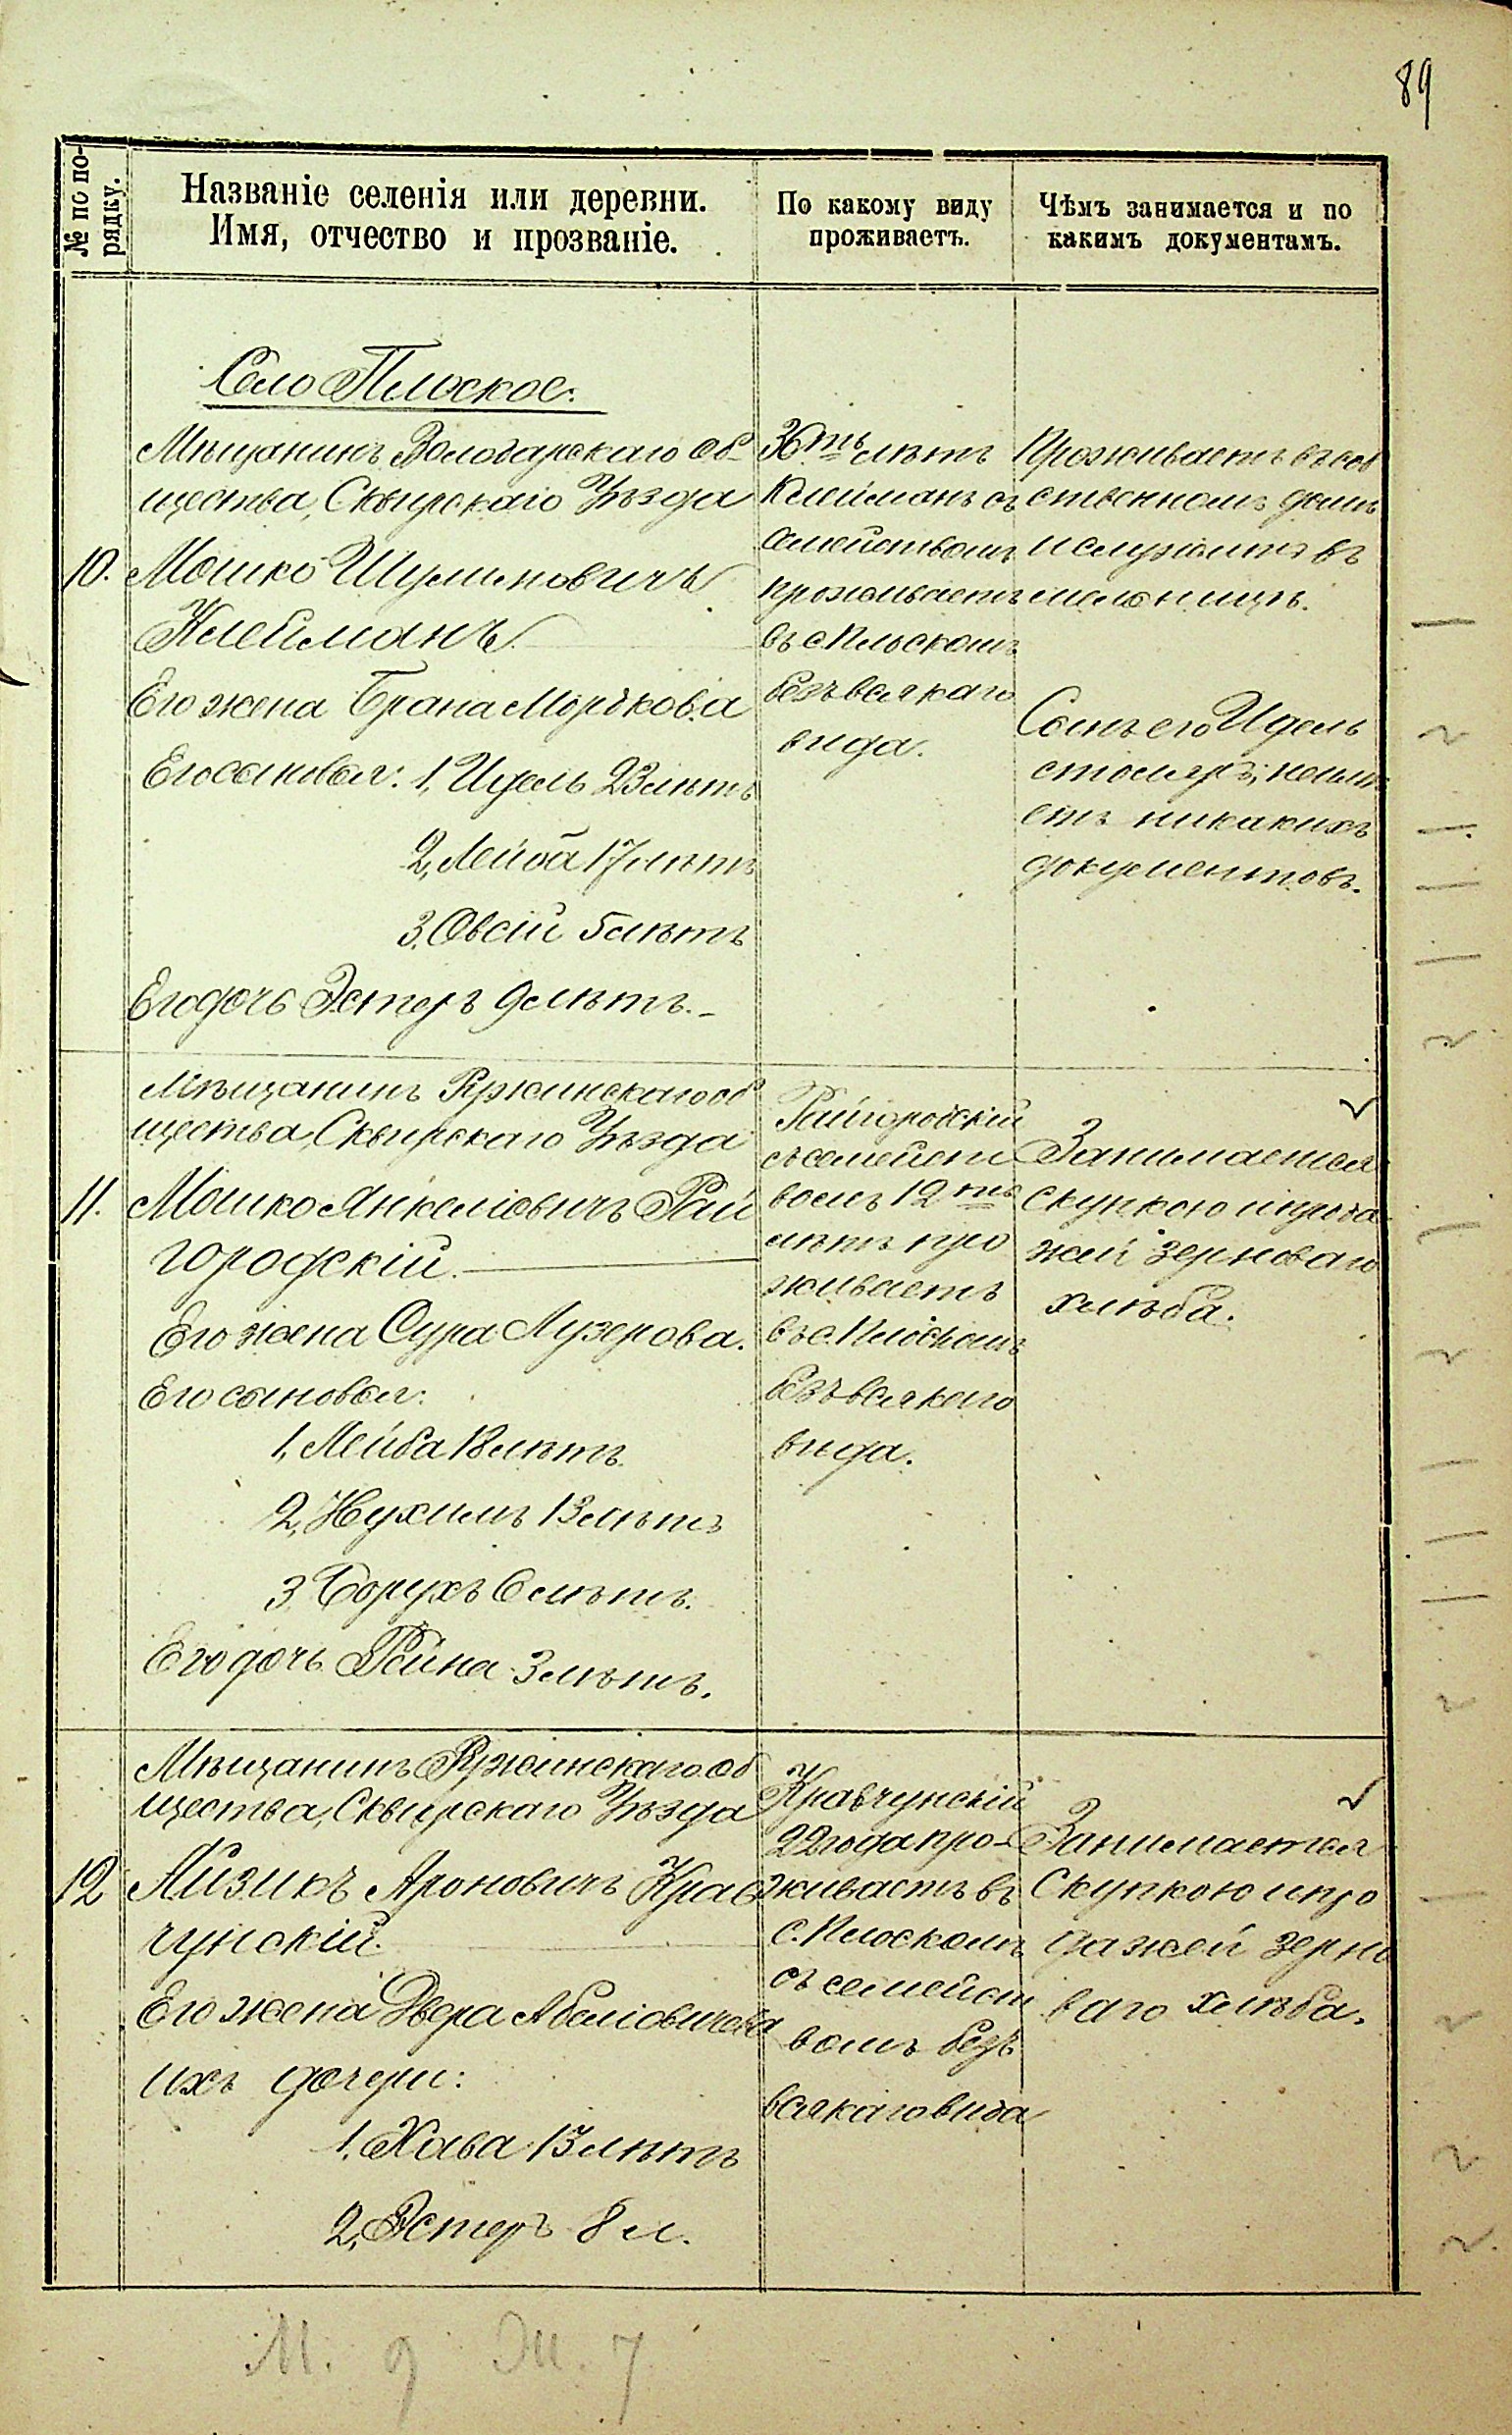 89
№ по по-
рядку.
Названіе селенія или деревни.
Имя, отчество и прозваніе.
По какому виду
проживаетъ.
Чѣмъ занимается и по
какимъ документамъ.
Село Плоское.
Мѣщанинъ Володарскаго об-
щества, Сквирскаго Уѣзда
10. Мошко Шулимовичъ
Клейманъ
Его жена Брана Моръкова
Его сыновья: 1, Идель 23 лѣтъ
2, Лейба 17 лѣтъ
3. Овсій 5 лѣтъ
Его дочь Эстеръ 9 лѣтъ.-
36ть лѣтъ
Клейманъ съ
семействомъ
проживаетъ
въ с. Плоскомъ
безъ всякаго
вида.
Проживаетъ въ соб
ственномъ домѣ
и служитъ въ
мельницѣ.
Сынъ его Идель
столяръ; неимѣ
етъ никакихъ
документовъ.
Мѣщанинъ Ружинскаго об
щества, Сквирскаго Уѣзда
11. Мошко Янкеліовичъ Рай
городскій.
Его жена Сура Лузерова.
Его сыновья:
1, Лейба 18 лѣтъ
2, Нухимъ 13 лѣтъ
3 Борухъ 6 лѣтъ.
Его дочь Рейна 3 лѣтъ.
Райгородскій
съ семейст
вомъ 12ть
лѣтъ про
живаетъ
въ с. Плоскомъ
безъ всякаго
вида.
Занимается
скупкою и прода
жей зерноваго
хлѣба.
Мѣщанинъ Ружинскаго об
щества, Сквирскаго Уѣзда
12 Айзикъ Ароновичъ Крав
чунскій.
Его жена Двера Абеліовичева
ихъ дочери:
1. Хава 13 лѣтъ
2, Эстеръ 8 л.
Кравчунскій
22 года про-
живаетъ въ
с. Плоскомъ
съ семейст
вомъ безъ
всякаго вида
Занимается
Скупкою и про
дажей зерно
ваго хлѣба.
М. 9 Ж. 7